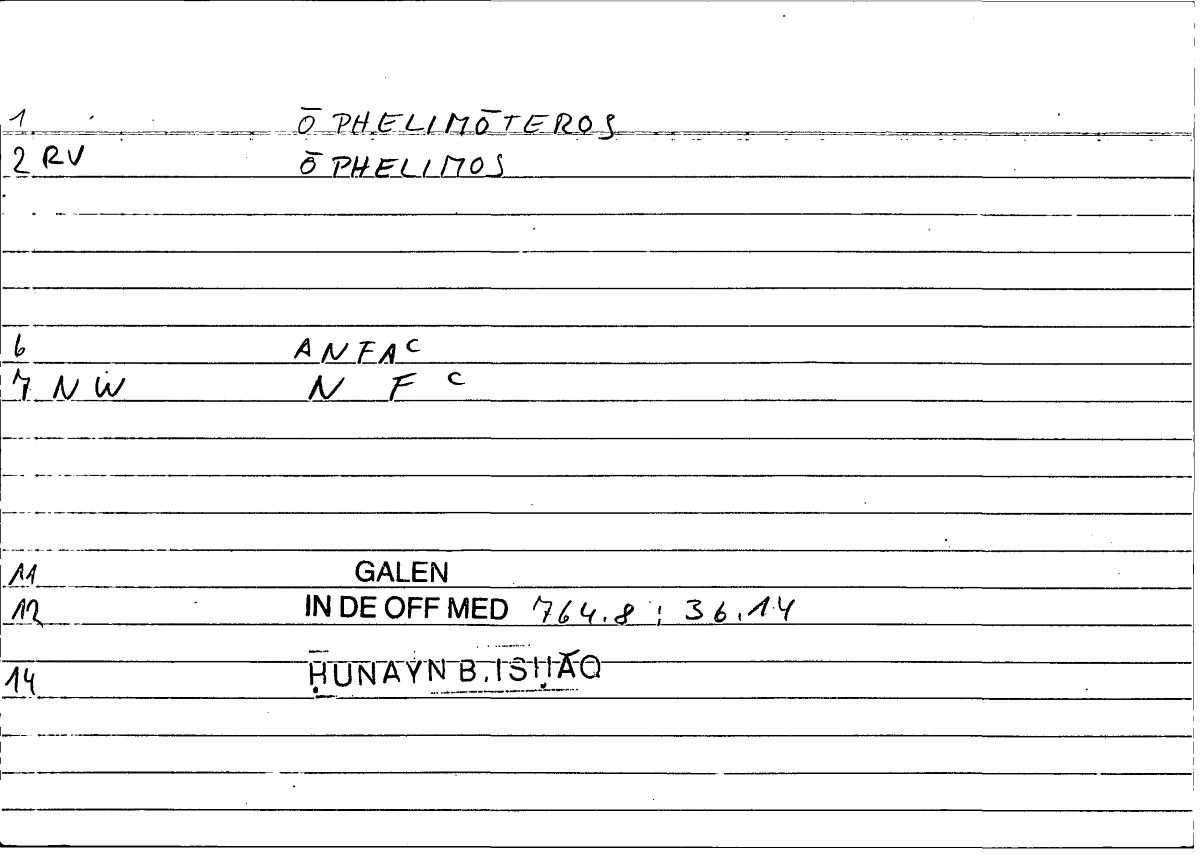 1 ŌPHELIMŌTEROS
2 RV ŌPHELIMOS
6 ANFAᶜ
7 NW N F ᶜ
11 GALEN
12 IN DE OFF MED 764.8 ; 36.14
14 ḤUNAYN B. ISḤĀQ